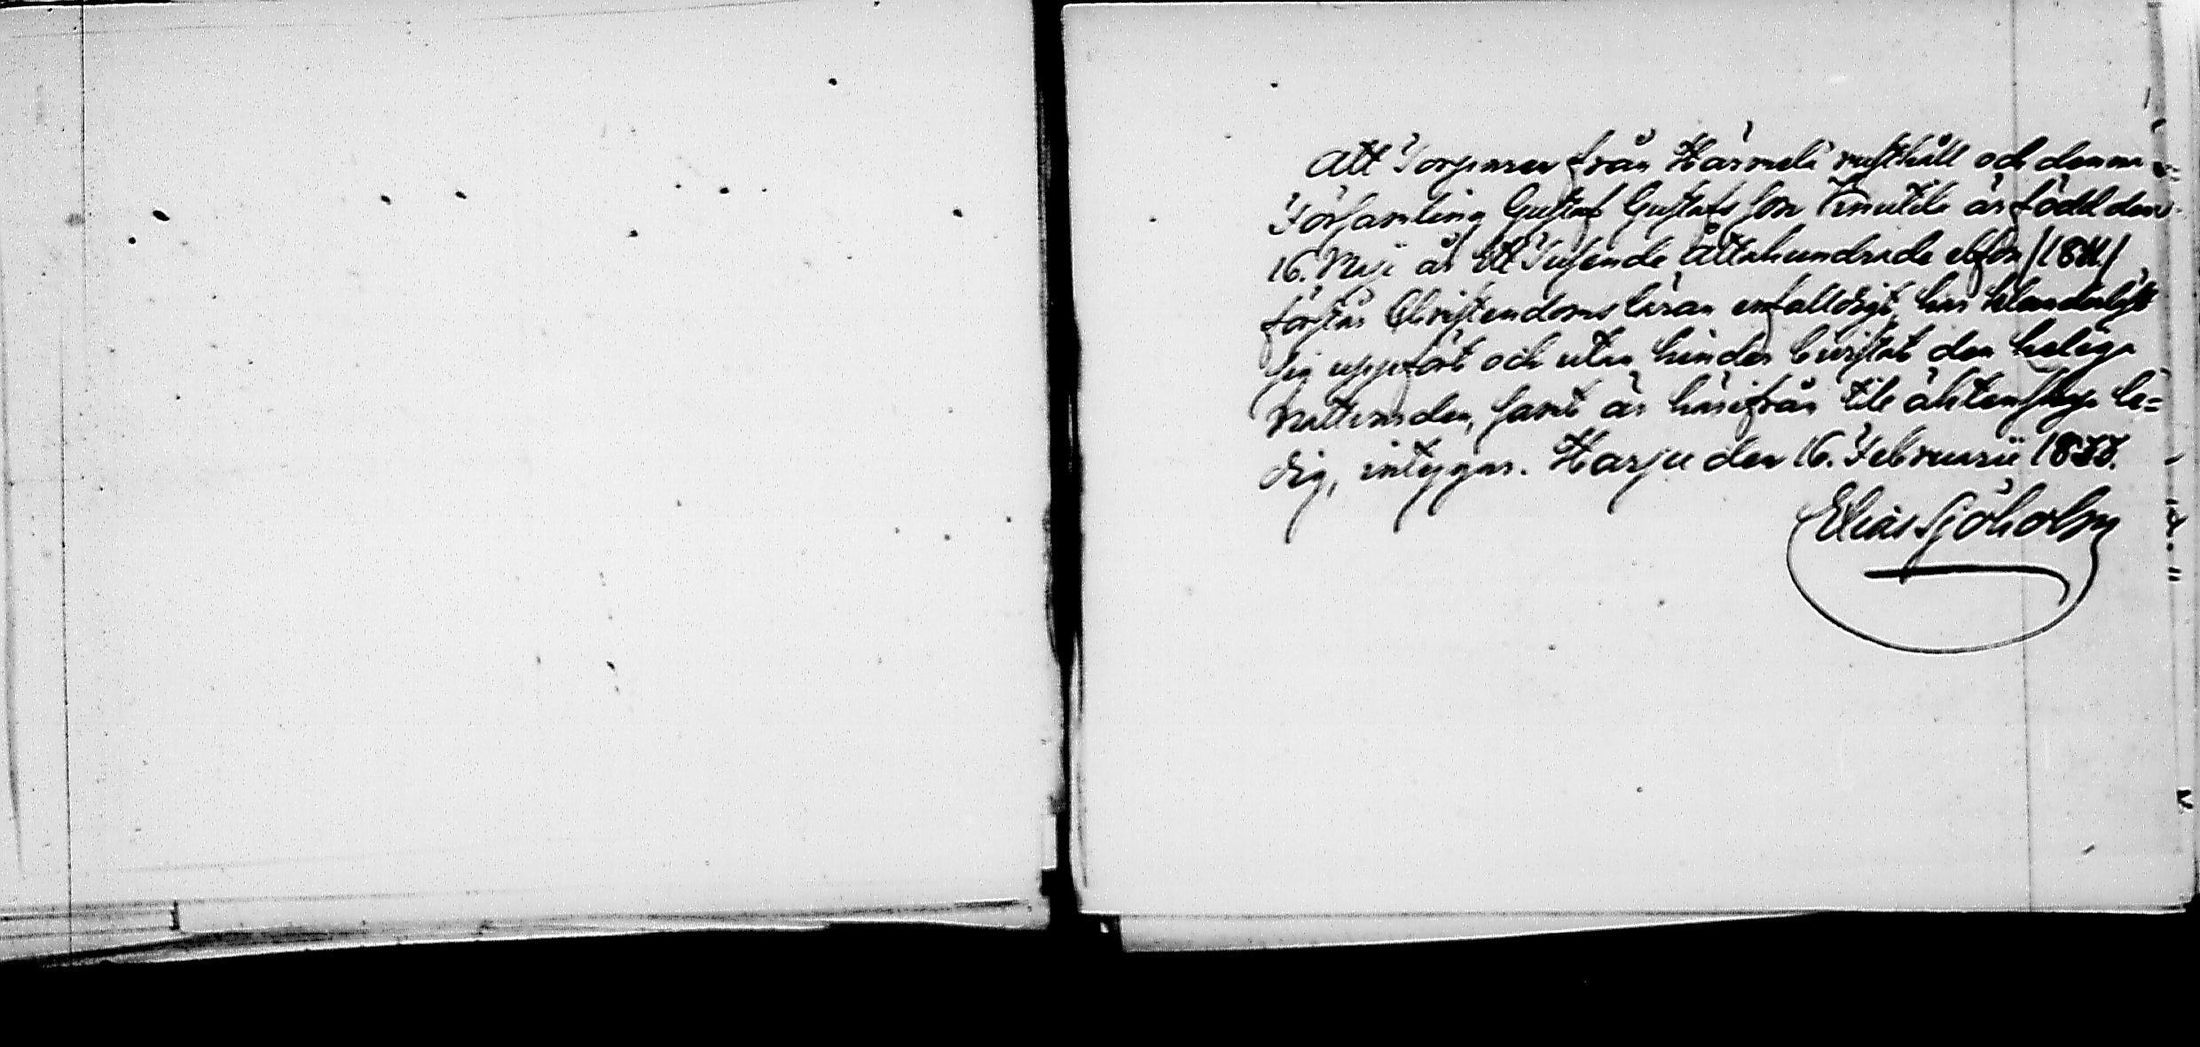 Att Torparen från Härmelä rusthåll och denna
Församling Gustaf Gustafs Son Knutila är född den
16. Maji år Ett Tusende Åttahundrade elfva /1811/
förstår Christendoms läran enfalldigt, har klanderlöst
sig uppfört och utan hinder bevistat den heliga
Nattvarden, samt är härifrån till äktenskap le=
dig, intygar. Harju den 16. Februarii 1833.
Elias Sjöholm